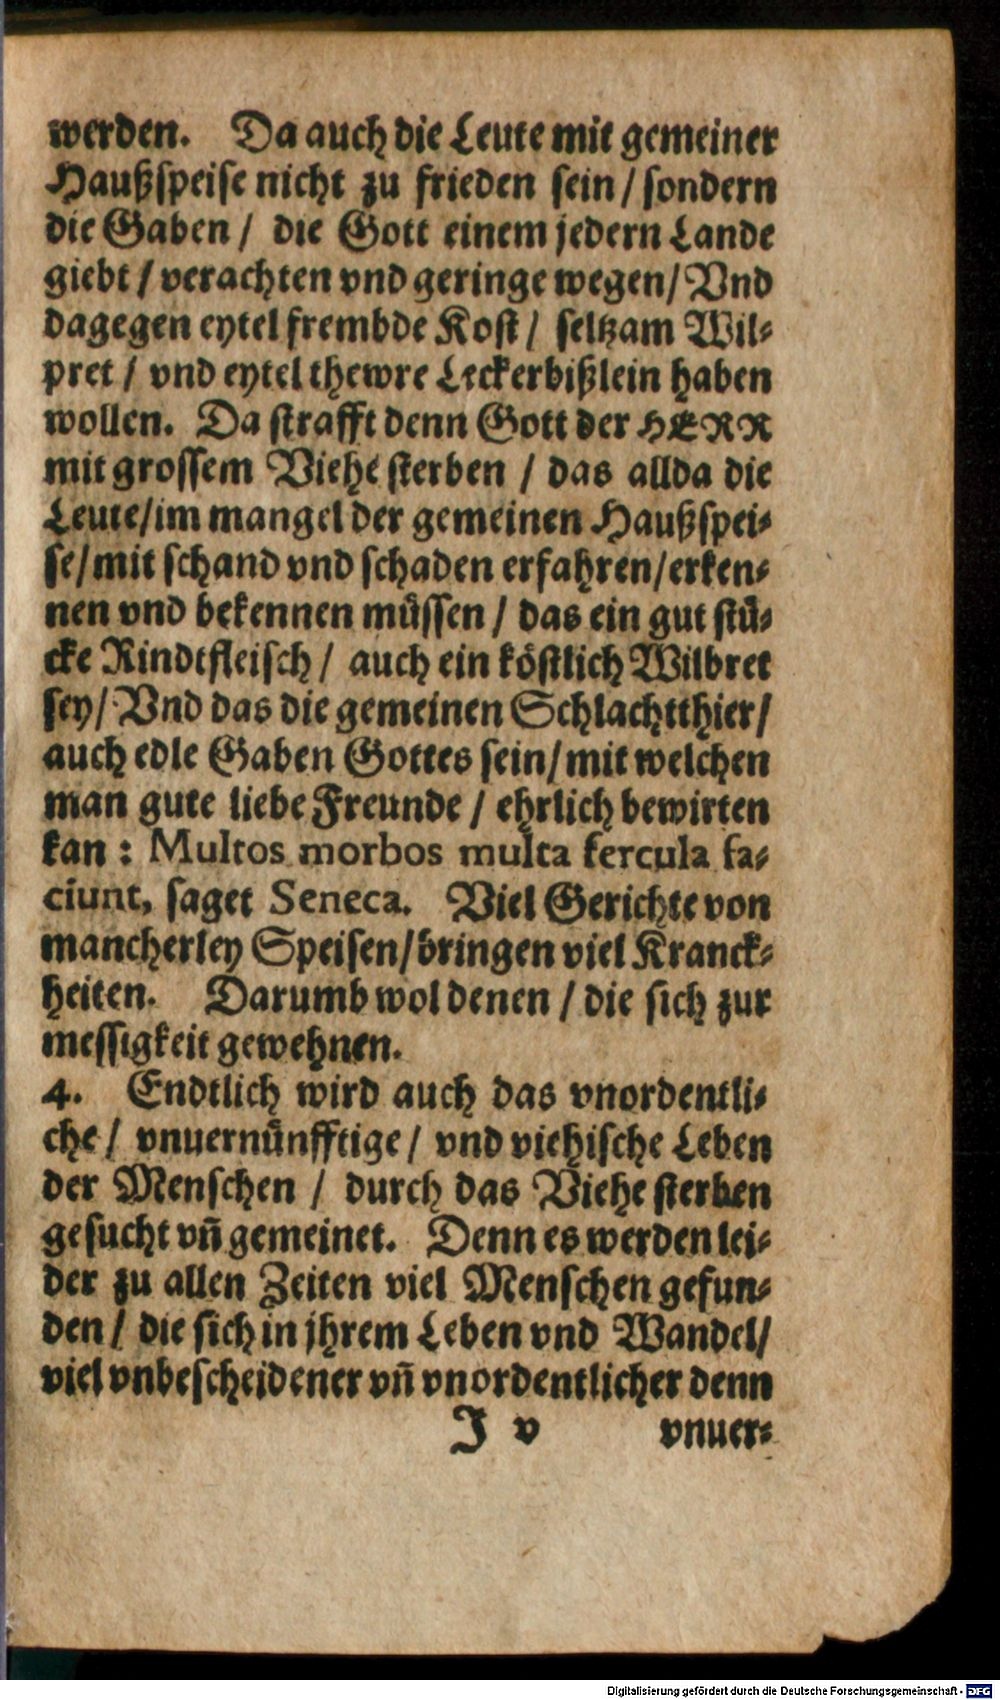 werden. Da auch die Leute mit gemeiner
Haußspeise nicht zu frieden sein / sondern
die Gaben / die Gott einem jedern Lande
giebt / verachten vnd geringe wegen / Vnd
dagegen eytel frembde Kost / seltzam Wil-
pret / vnd eytel thewre Leckerbißlein haben
wollen. Da strafft denn Gott der HERR
mit grossem Viehe sterben / das allda die
Leute / im mangel der gemeinen Haußspei-
se / mit schand vnd schaden erfahren / erken-
nen vnd bekennen müssen / das ein gut stü-
cke Rindtfleisch / auch ein köstlich Wilbret
sey / Vnd das die gemeinen Schlachtthier /
auch edle Gaben Gottes sein / mit welchen
man gute liebe Freunde / ehrlich bewirten
kan : Multos morbos multa fercula fa-
ciunt, saget Seneca. Viel Gerichte von
mancherley Speisen / bringen viel Kranck-
heiten. Darumb wol denen / die sich zur
messigkeit gewehnen.
4. Endtlich wird auch das vnordentli-
che / vnuernünfftige / vnd viehische Leben
der Menschen / durch das Viehe sterben
gesucht vn̄ gemeinet. Denn es werden lei-
der zu allen Zeiten viel Menschen gefun-
den / die sich in jhrem Leben vnd Wandel /
viel vnbescheidener vn̄ vnordentlicher denn
J v vnuer-
Digitalisierung gefördert durch die Deutsche Forschungsgemeinschaft - DFG